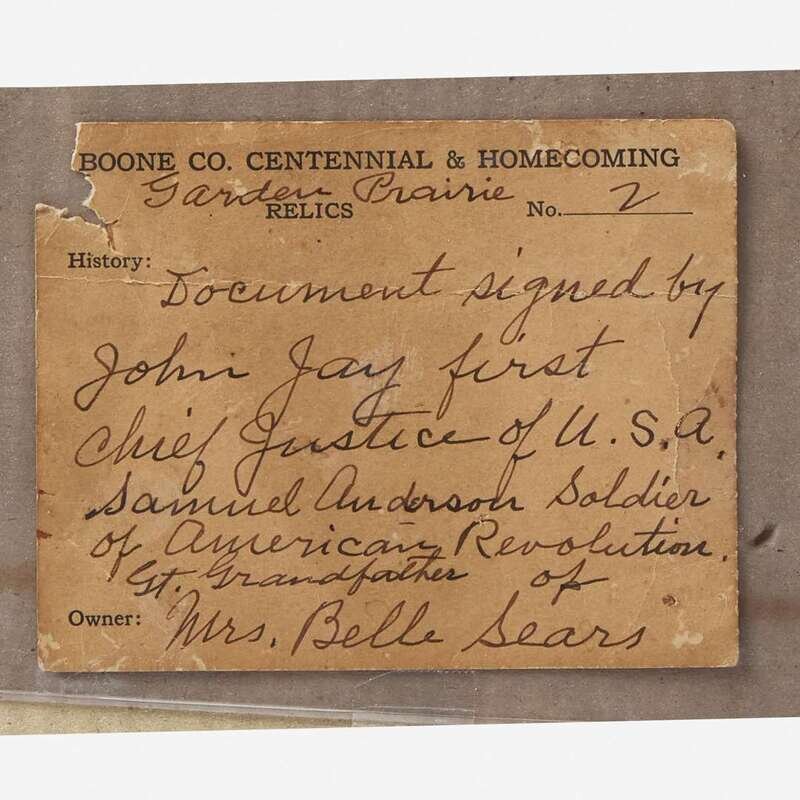 BOONE CO. CENTENNIAL & HOMECOMING
Garden Prairie
RELICS No. 2
History:
Document signed by
John Jay first
Chief Justice of U.S.A.
Samuel Anderson Soldier
of American Revolution.
Gt. Grandfather of
Owner: Mrs. Belle Sears